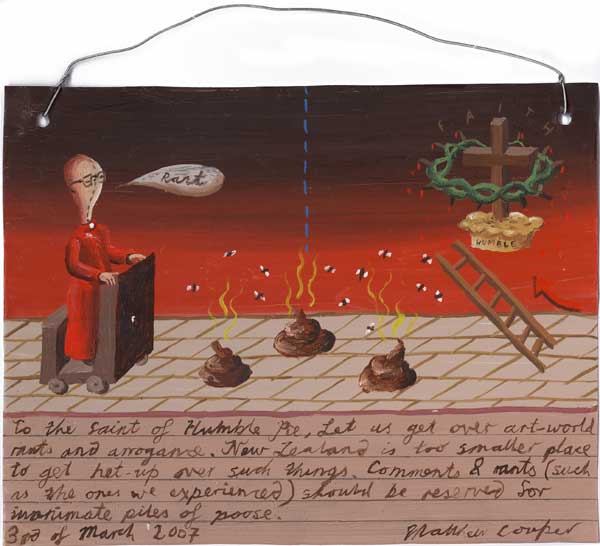 FAITH
Rant
HUMBLE
To the saint of Humble Pie, Let us get over art-world
rants and arrogance. New Zealand is too smaller place
to get het-up over such things. Comments & rants (such
as the ones we experienced) should be reserved for
inanimate piles of poose.
3rd of March 2007 Matthew Couper